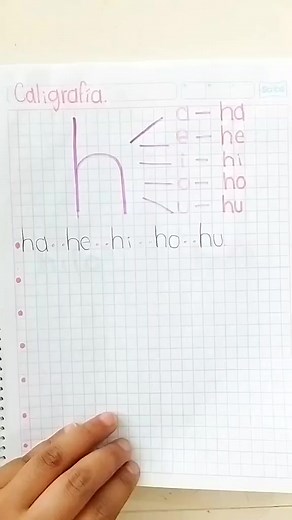 Caligrafía.
a - ha
e - he
h i - hi
o - ho
u - hu
ha - - he - - hi - - ho - - hu.